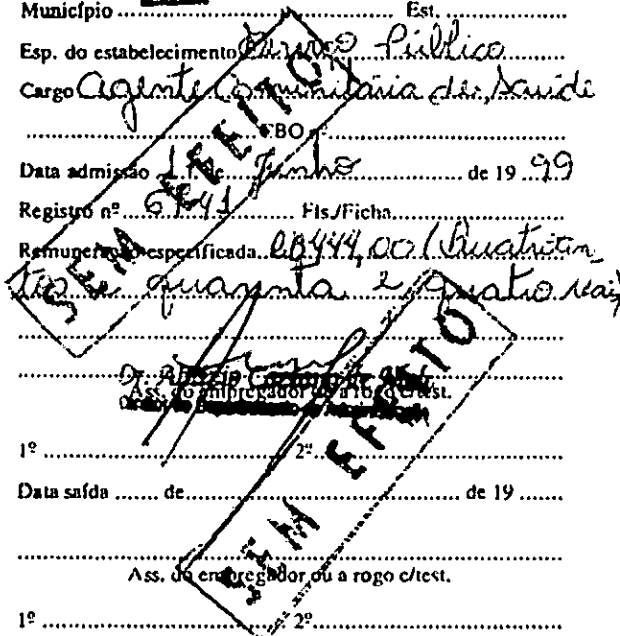 Município ........ Est. ........
Esp. do estabelecimento Serviço Público
Cargo Agente Comunitária de Saúde
CBO nº ........
Data admissão 1º de Junho de 19 99
Registro nº Fls./Ficha ........
Remuneração especificada R$444,00 (Quatrocen
tos e quarenta e quatro reais
SEM EFEITO
Dr.
Ass. do empregador ou a rogo c/test.
1º ........ 2º ........
Data saída ........ de ........ de 19 ........
SEM EFEITO
Ass. do empregador ou a rogo c/test.
1º ........ 2º ........